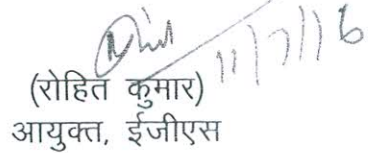 11/7/16
(रोहित कुमार)
आयुक्त, ईजीएस